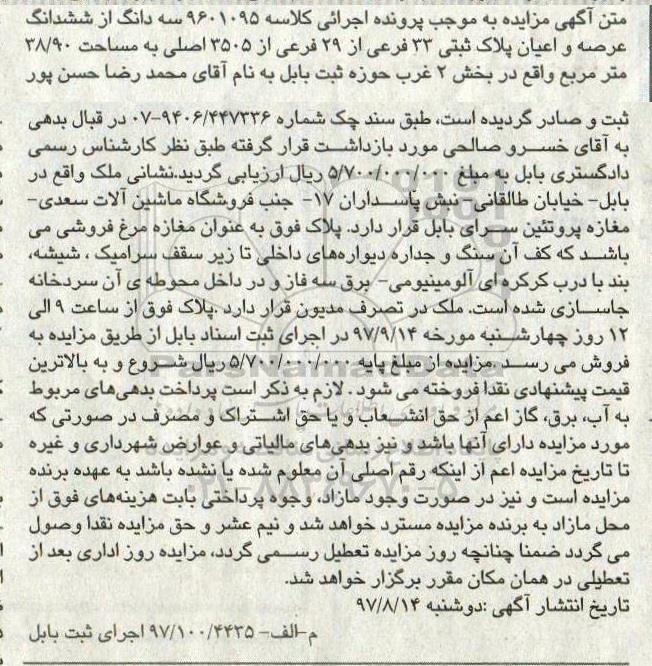 متن آگهی مزایده به موجب پرونده اجرائی کلاسه ۹۶۰۱۰۹۵ سه دانگ از ششدانگ
عرصه و اعیان پلاک ثبتی ۳۳ فرعی از ۲۹ فرعی از ۳۵۰۵ اصلی به مساحت ۳۸/۹۰
متر مربع واقع در بخش ۲ غرب حوزه ثبت بابل به نام آقای محمد رضا حسن پور
ثبت و صادر گردیده است، طبق سند چک شماره ۰۷-۹۴۰۶/۴۴۷۳۳۶ در قبال بدهی
به آقای خسرو صالحی مورد بازداشت قرار گرفته طبق نظر کارشناس رسمی
دادگستری بابل به مبلغ ۵/۷۰۰/۰۰۰/۰۰۰ ریال ارزیابی گردید.نشانی ملک واقع در
بابل- خیابان طالقانی- نبش پاسداران ۱۷- جنب فروشگاه ماشین آلات سعدی-
مغازه پروتئین سرای بابل قرار دارد. پلاک فوق به عنوان مغازه مرغ فروشی می
باشد که کف آن سنگ و جداره دیوارهای داخلی تا زیر سقف سرامیک ، شیشه،
بند با درب کرکره ای آلومینیومی- برق سه فاز و در داخل محوطه ی آن سردخانه
جاسازی شده است. ملک در تصرف مدیون قرار دارد .پلاک فوق از ساعت ۹ الی
۱۲ روز چهارشنبه مورخه ۹۷/۹/۱۴ در اجرای ثبت اسناد بابل از طریق مزایده به
فروش می رسد. مزایده از مبلغ پایه ۵/۷۰۰/۰۰۰/۰۰۰ ریال شروع و به بالاترین
قیمت پیشنهادی نقدا فروخته می شود . لازم به ذکر است پرداخت بدهی‌های مربوط
به آب، برق، گاز اعم از حق انشعاب و یا حق اشتراک و مصرف در صورتی که
مورد مزایده دارای آنها باشد و نیز بدهی‌های مالیاتی و عوارض شهرداری و غیره
تا تاریخ مزایده اعم از اینکه رقم اصلی آن معلوم شده یا نشده باشد به عهده برنده
مزایده است و نیز در صورت وجود مازاد، وجوه پرداختی بابت هزینه‌های فوق از
محل مازاد به برنده مزایده مسترد خواهد شد و نیم عشر و حق مزایده نقدا وصول
می گردد ضمنا چنانچه روز مزایده تعطیل رسمی گردد، مزایده روز اداری بعد از
تعطیلی در همان مکان مقرر برگزار خواهد شد.
تاریخ انتشار آگهی :دوشنبه ۹۷/۸/۱۴
م-الف- ۹۷/۱۰۰/۴۴۳۵ اجرای ثبت بابل